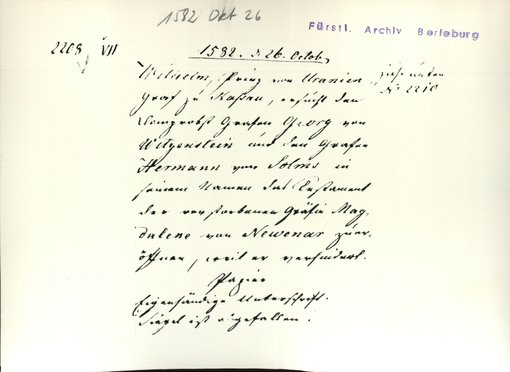 1582 Okt 26
Fürstl. Archiv Berleburg
2208 VII
1582. d. 26. Octob.
Wilhelm, Prinz von Uranien
siehe unten
No 2210
Graf zu Naßau, ersucht den
Domprobst Grafen Georg von
Witgenstein und den Grafen
Hermann von Solms in
seinem Namen das Testament
der verstorbenen Gräfin Mag-
dalene von Newenar zu er-
öffnen, weil er verhindert.
Papier
Eigenhändige Unterschrift.
Siegel ist abgefallen.